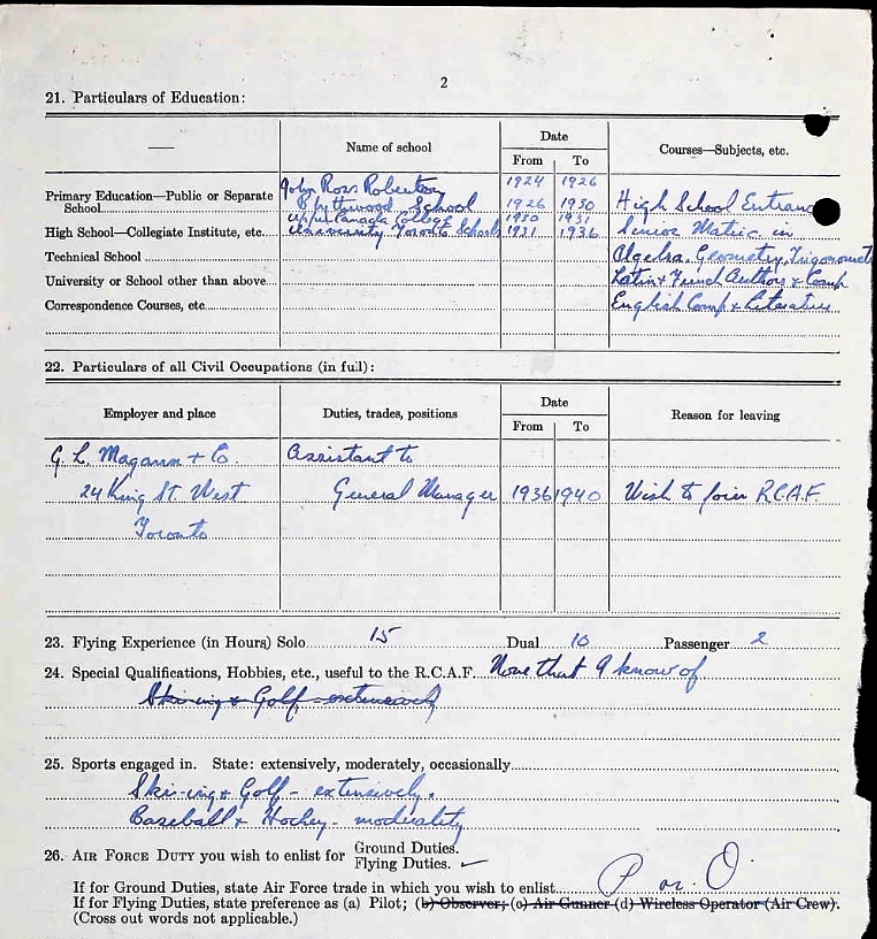 2
21. Particulars of Education:
— Name of school Date Courses—Subjects, etc.
From To
John Ross Robertson 1924 1926
Primary Education—Public or Separate
School Blythwood School 1926 1930 High School Entrance
Upper Canada College 1930 1931
High School—Collegiate Institute, etc. University Toronto Schools 1931 1936 Senior Matric in
Technical School Algebra, Geometry, Trigonomet
University or School other than above Latin & French Authors & Comp
Correspondence Courses, etc. English Comp & Literature
22. Particulars of all Civil Occupations (in full):
Employer and place Duties, trades, positions Date Reason for leaving
From To
G. L. Magann & Co. Assistant to
24 King St. West General Manager 1936 1940 Wish to join R.C.A.F.
Toronto
23. Flying Experience (in Hours) Solo 15 Dual 10 Passenger 2
24. Special Qualifications, Hobbies, etc., useful to the R.C.A.F. None that I know of
Ski-ing & Golf - extensively
25. Sports engaged in. State: extensively, moderately, occasionally
Ski-ing & Golf - extensively.
Baseball & Hockey - moderality
26. AIR FORCE DUTY you wish to enlist for Ground Duties.
Flying Duties. ✓
If for Ground Duties, state Air Force trade in which you wish to enlist P or O
If for Flying Duties, state preference as (a) Pilot; (b) Observer; (c) Air Gunner (d) Wireless Operator (Air Crew).
(Cross out words not applicable.)